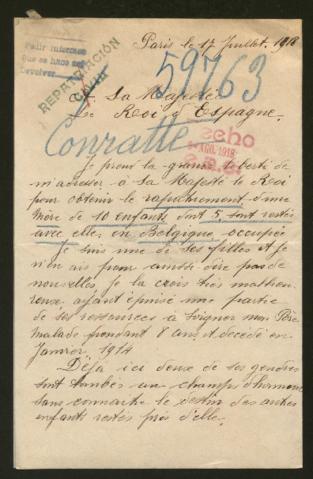 Paris le 17 Juillet. 1918
Pedir informes
que se hace en
Devolver
REPATRIACIÓN
CIVIL
59763
A Sa Majesté
Le Roi d'Espagne.
Conratte
Hecho
AGO. 1918
Je prends la grande liberté de
m'adresser à Sa Majesté le Roi
pour obtenir le rapatriement d'une
Mère de 10 enfants dont 5, sont restés
avec elle, en Belgique occupée
Je suis une de ses filles et je
n'en ais pour ainsi dire pas de
nouvelles, je la crois très malheu
reuse ayant épuisé une partie
de ses ressources à soigner mon Père
malade pendant 8 ans, et décédé en
Janvier 1914
Déjà ici deux de ses gendres
sont tombés au champ d'honneur
sans connaître le destin des autres
enfants restés près d'elle.